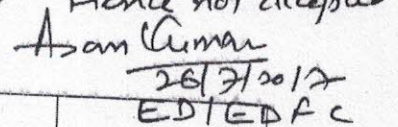 Hence not accepted
Asan Kumar
26/7/2017
ED/EDFC